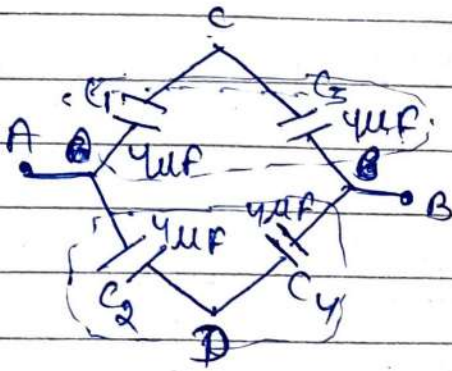 C
C1 C3
4μF
A
4μF
B
B
4μF 4μF
C2 C4
D